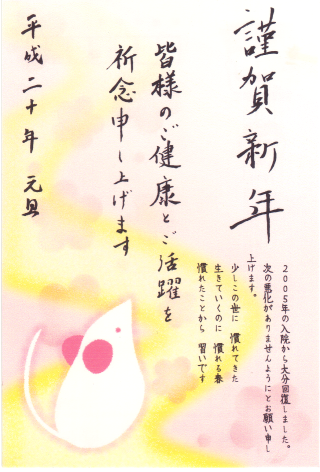 謹賀新年
皆様のご健康とご活躍を
祈念申し上げます
平成二十年 元旦
2005年の入院から大分回復しました。
次の悪化がありませんようにとお願い申し
上げます。
少しこの世に 慣れてきた
生きていくのに 慣れる春
慣れたことから 習いです